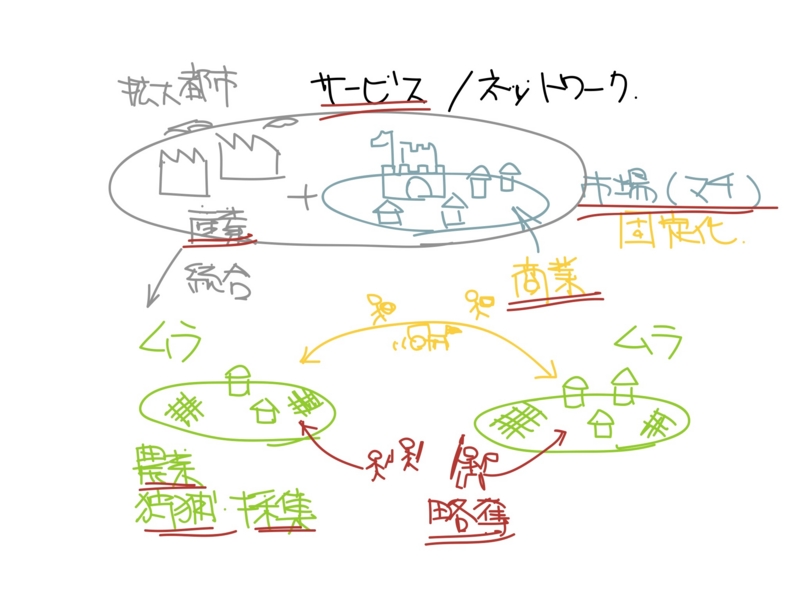 拡大都市
サービス / ネットワーク.
市場(マチ)
固定化.
産業
統合
商業
ムラ
ムラ
農業
狩猟・採集
略奪